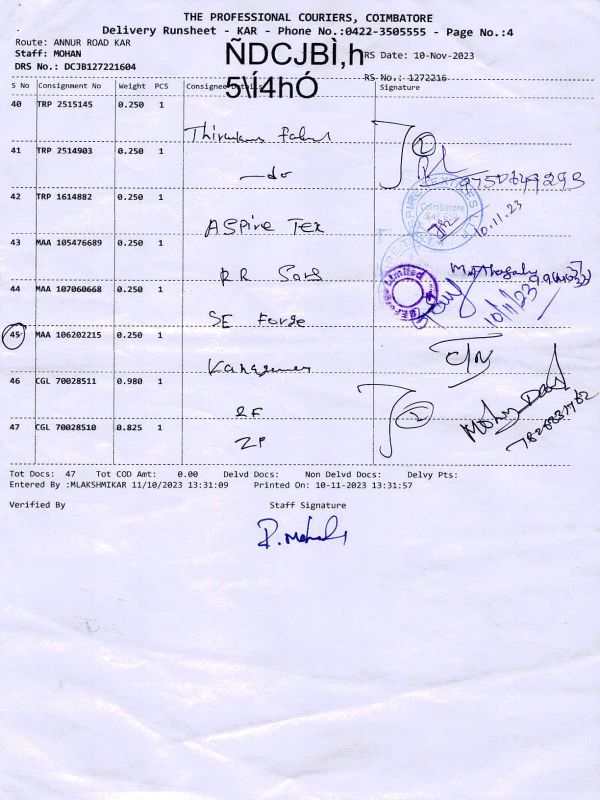 THE PROFESSIONAL COURIERS, COIMBATORE
Delivery Runsheet - KAR - Phone No.:0422-3505555 - Page No.:4
Route: ANNUR ROAD KAR
Staff: MOHAN
DRS No.: DCJB127221604
ÑDCJBÌ,h
5\Í4hÓ
RS Date: 10-Nov-2023
RS No.: 1272216
S No Consignment No Weight PCS Consignee Details Signature
40 TRP 2515145 0.250 1
41 TRP 2514903 0.250 1 -do
42 TRP 1614882 0.250 1 ASpire Tex
Coimbatore
10.11.23
43 MAA 105476689 0.250 1 RR Sons
44 MAA 107060668 0.250 1 SE Forge
10/11/23
45 MAA 106202215 0.250 1
46 CGL 70028511 0.980 1 2
47 CGL 70028510 0.825 1
Tot Docs: 47 Tot COD Amt: 0.00 Delvd Docs: Non Delvd Docs: Delvy Pts:
Entered By :MLAKSHMIKAR 11/10/2023 13:31:09 Printed On: 10-11-2023 13:31:57
Verified By Staff Signature